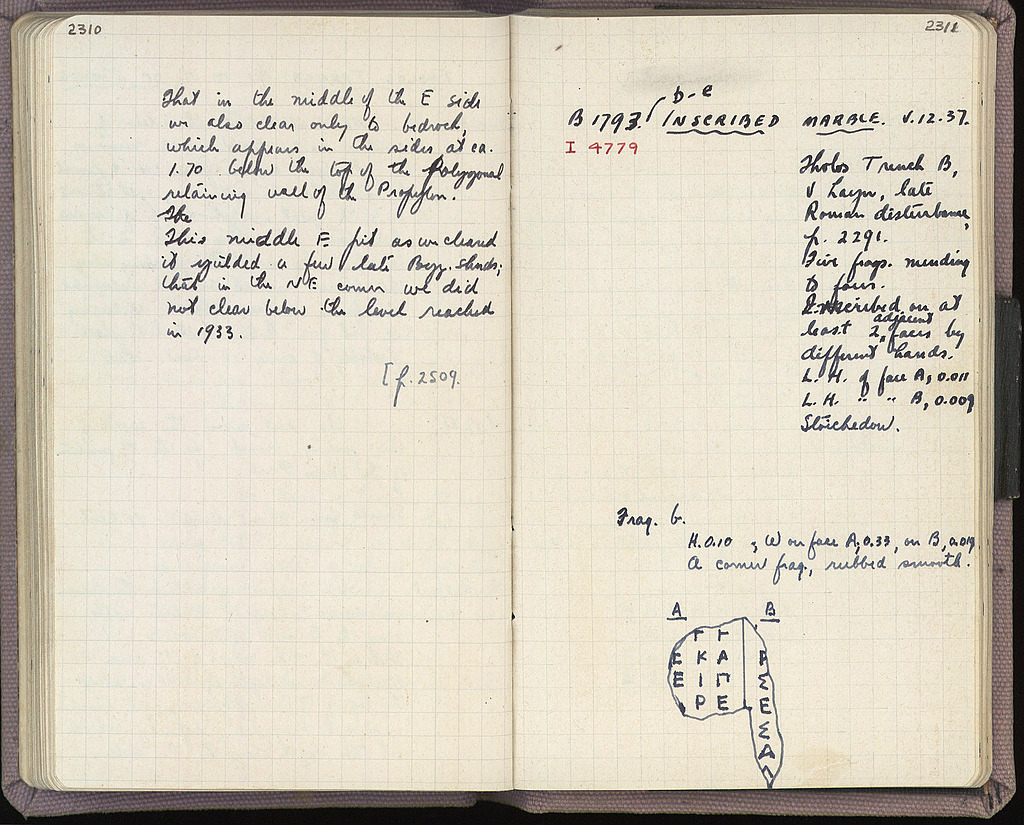 2310
That in the middle of the E side
we also clear only to bedrock,
which appears in the sides at ca.
1.70 below the top of the Polygonal
retaining wall of the Propylon.
The
This middle E pit as we cleared
it yielded a few late Byz. sherds;
that in the NE corner we did
not clear below the level reached
in 1933.
[p. 2509.
2311
b-e
B 1793. INSCRIBED MARBLE. V.12.37.
I 4779
Tholos Trench B,
V Layer, late
Roman disturbance,
p. 2291.
Five frags. mending
to four.
Inscribed on at
least 2 adjacent faces by
different hands.
L. H. of face A, 0.011
L. H. " " B, 0.009
Stoichedon.
Frag. b.
H. 0.10 ; W on face A, 0.33, on B, 0.019
A corner frag., rubbed smooth.
A B
Γ Γ
Ε Κ Α Ρ
Ε Ι Π Σ
Ρ Ε Ε
Σ
Α